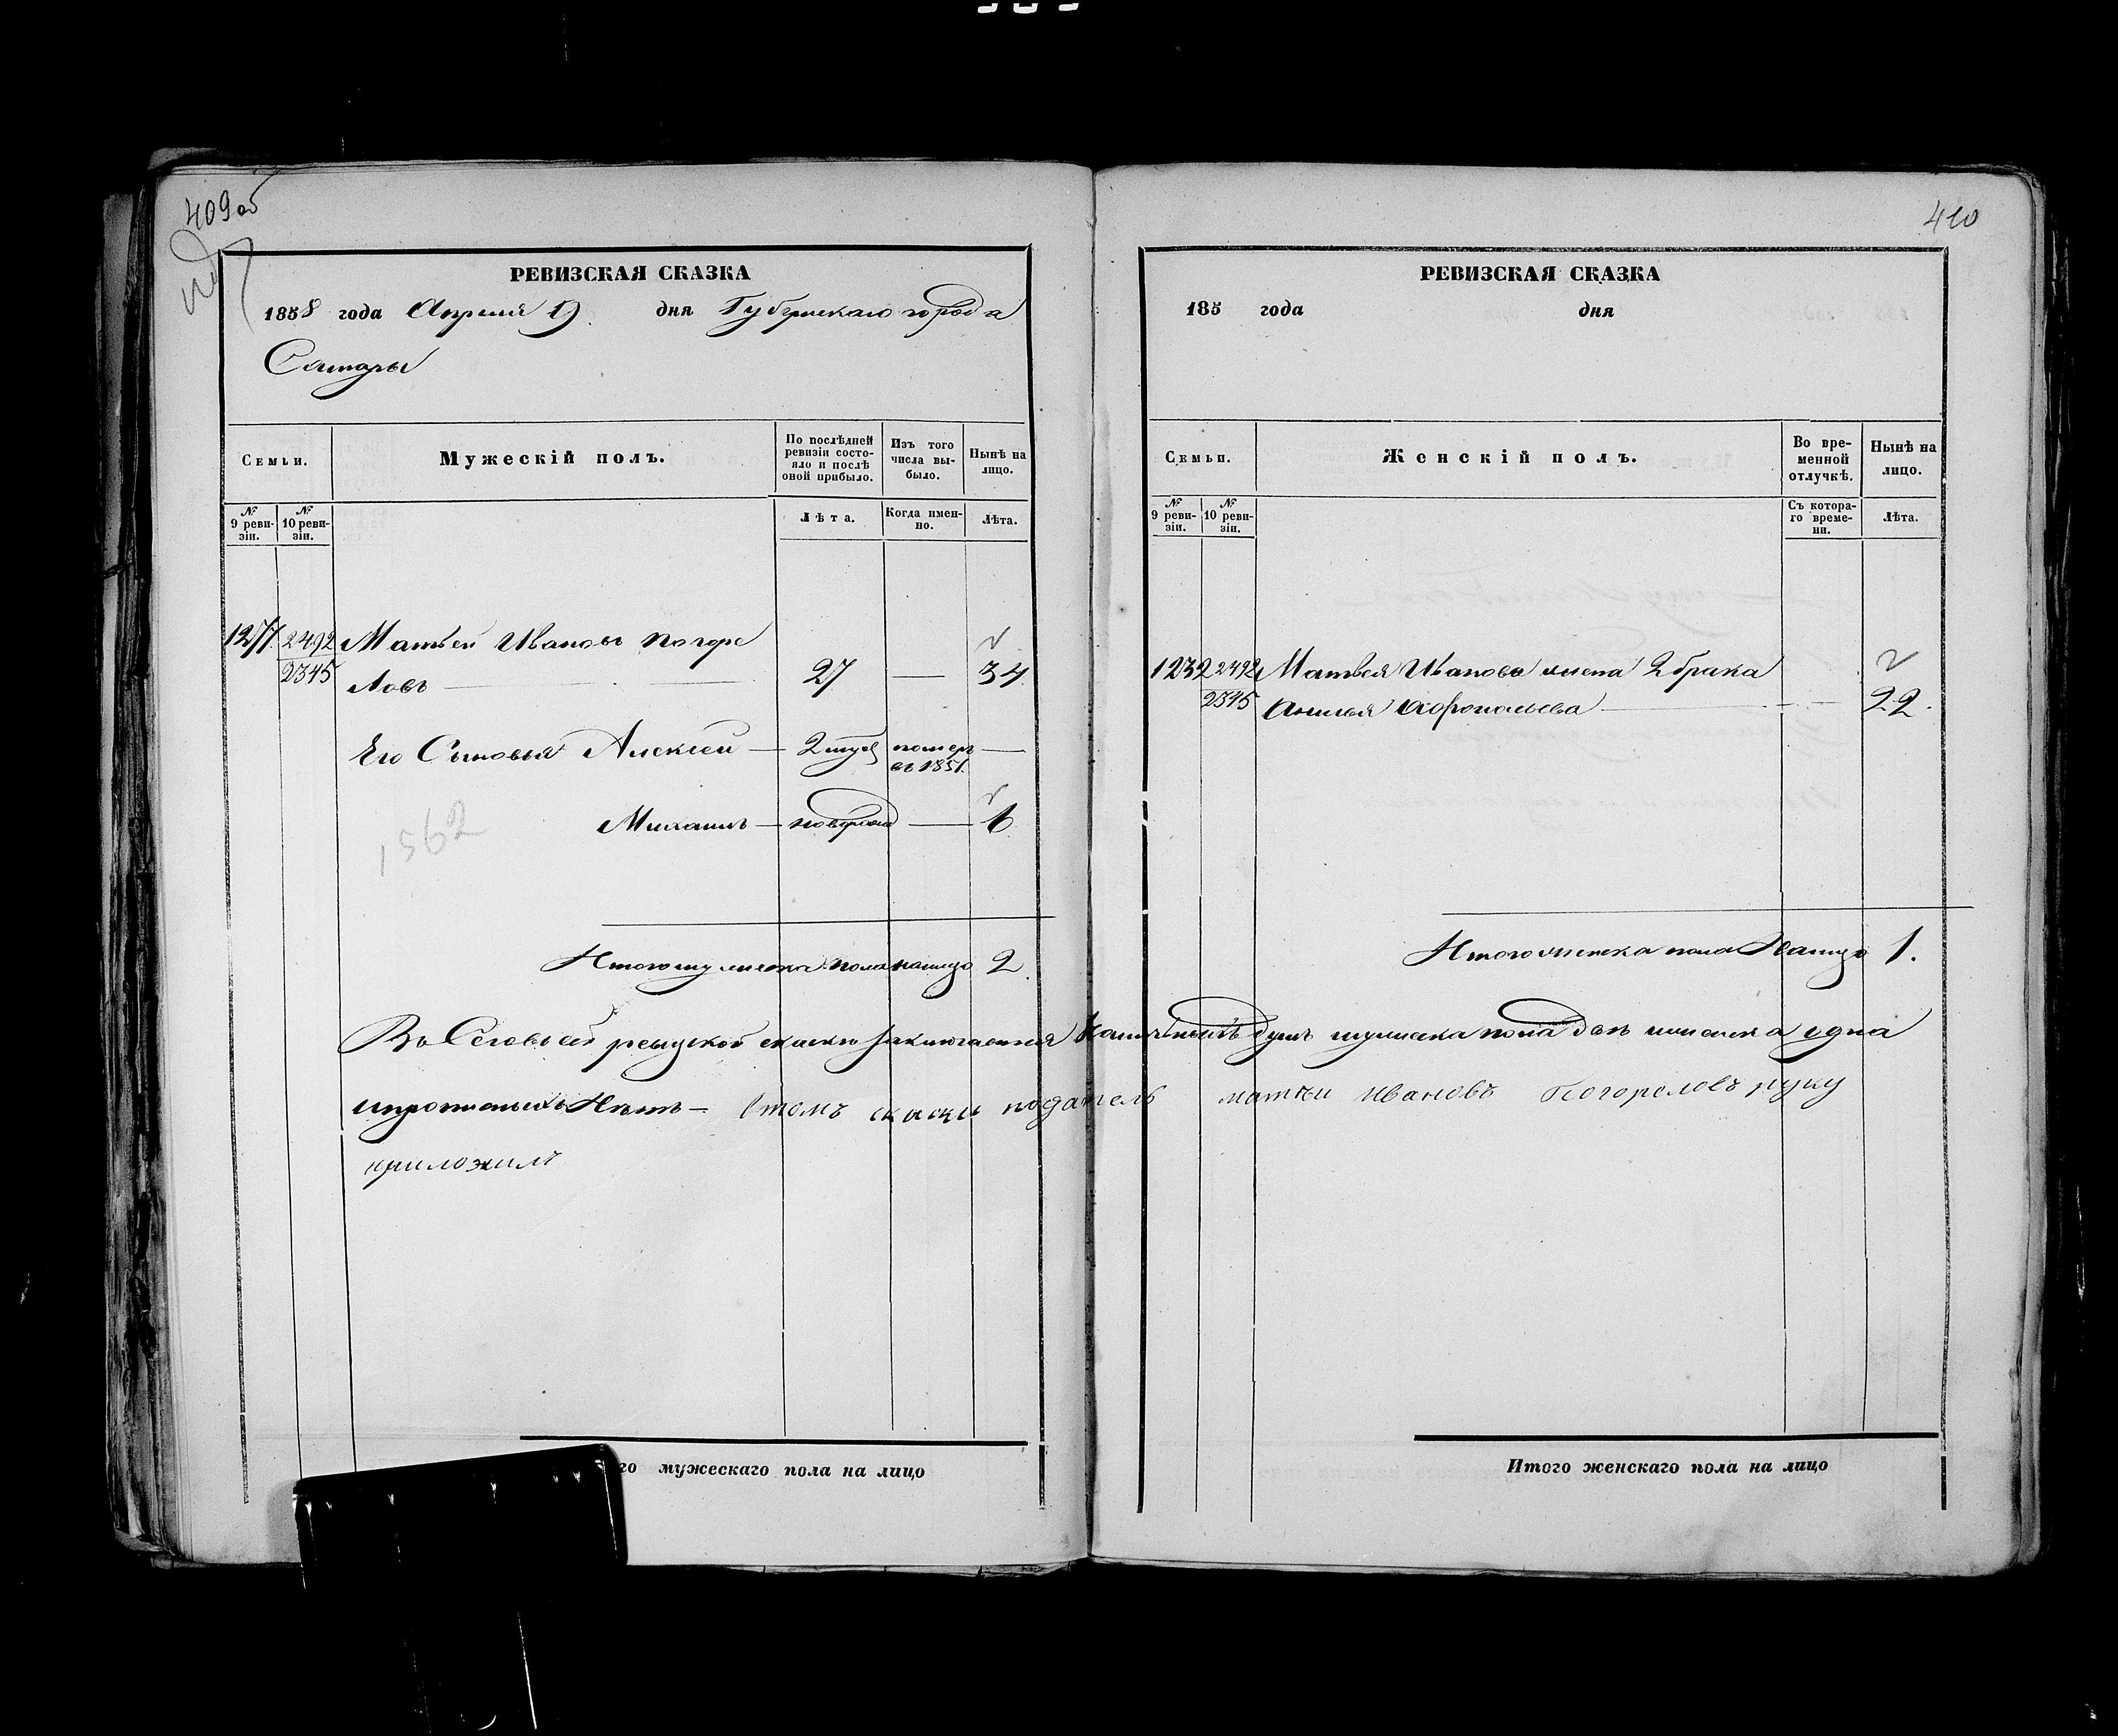 409 об
РЕВИЗСКАЯ СКАЗКА
1858 года Апреля 19 дня Губернскаго города
Самары
Семьи.
Мужескій полъ.
По послѣдней ревизіи состояло и послѣ оной прибыло.
Изъ того числа выбыло.
Нынѣ на лицо.
№ 9 ревизіи.
№ 10 ревизіи.
Лѣта.
Когда именно.
Лѣта.
1277 2492 Матвей Ивановъ Погоре
2345 ловъ — 27 — 34
Его Сыновья Алексей — 2 помер —
въ 1851.
Михаилъ — новорож — 6
1562
Итого мужеска пола налицо 2
410
РЕВИЗСКАЯ СКАЗКА
185 года дня
Семьи.
Женскій полъ.
Во временной отлучкѣ.
Нынѣ на лицо.
№ 9 ревизіи.
№ 10 ревизіи.
Съ котораго времени.
Лѣта.
1232 2492 Матвея Иванова жена 2 брака
2345 — 22.
Итого женска пола Налицо 1.
Въ Сей ревизской скаски заключается душъ мужеска пола две женска одна
и прописныхъ Нетъ – втомъ скаски податель матвеи ивановъ Погореловъ руку
приложилъ
го мужескаго пола на лицо
Итого женскаго пола на лицо